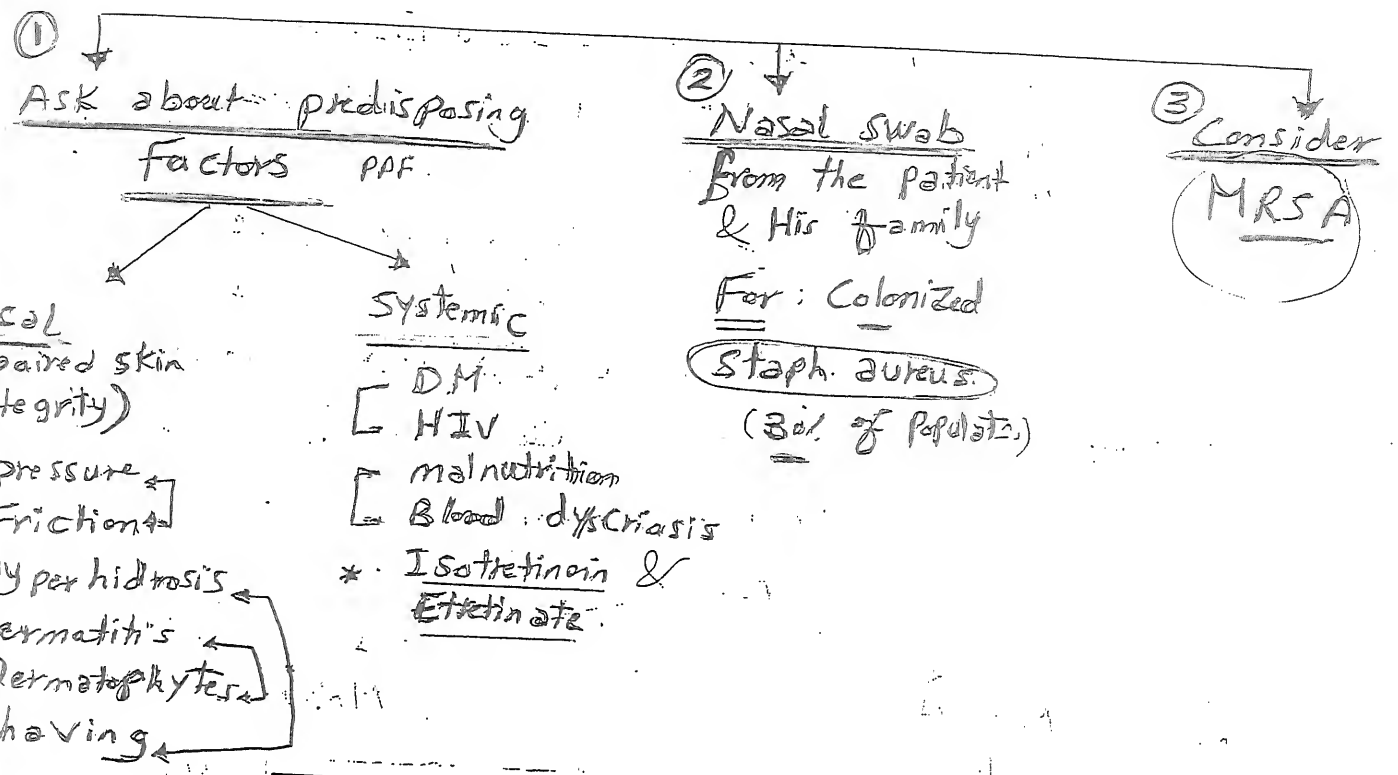 ①
Ask about predisposing
Factors PPF.
cal
paired skin
tegrity)
pressure
Friction
yper hidrosis
ermatitis
Dermatophytes
having
systemic
DM
HIV
malnutrition
Blood dyscriasis
* Isotretinoin &
Etretinate.
②
Nasal swab
from the patient
& His family
For: Colonized
Staph. aureus.
(30% of Populatn.)
③
Consider
MRSA